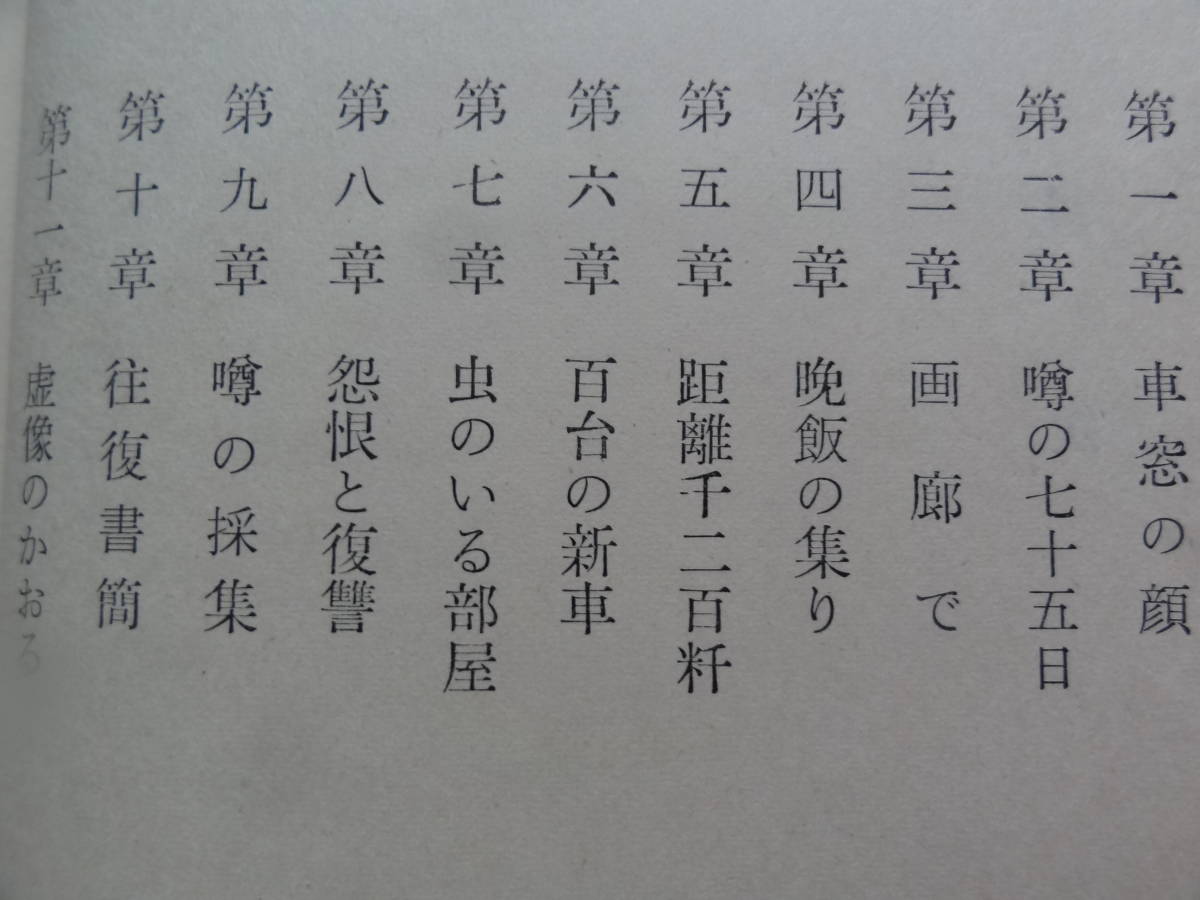 第一章 車窓の顔
第二章 噂の七十五日
第三章 画廊で
第四章 晩飯の集り
第五章 距離千二百粁
第六章 百台の新車
第七章 虫のいる部屋
第八章 怨恨と復讐
第九章 噂の採集
第十章 往復書簡
第十一章 虚像のかおる